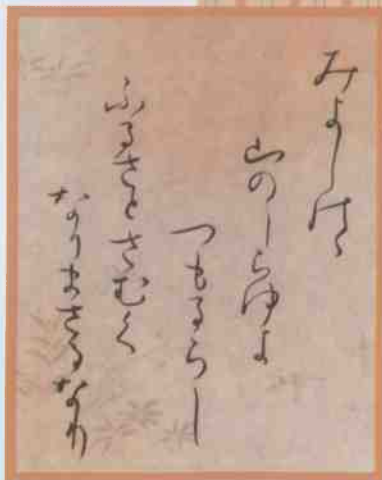 みよしのゝ
山のしらゆき
つもるらし
ふるさとさむく
なりまさるなり